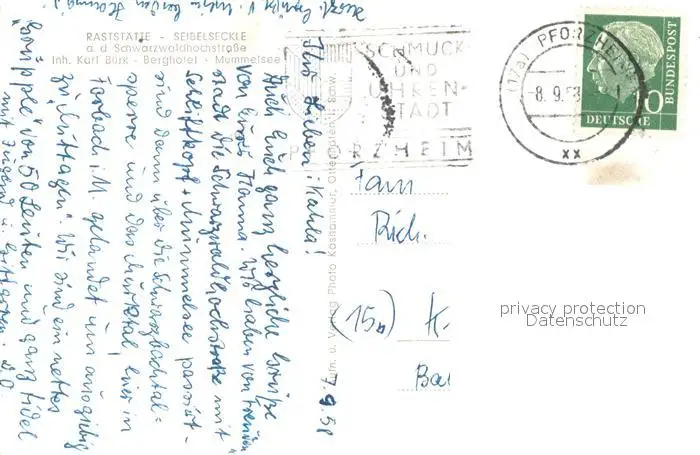 Herzl. Grüße v. Mein
RASTSTÄTTE - SEIBELSECKLE
a. d. Schwarzwaldhochstraße
Inh. Karl Bürk - Berghotel - Mummelsee
SCHMUCK-
UND
UHREN-
STADT
PFORZHEIM
(17a) PFORZHEIM
-8.9.58
xx
DEUTSCHE
BUNDESPOST
10
Ihr Lieben i. Kahla!
Auch Euch ganz herzliche Grüße
von Eurer Hanna. Wir haben von Freuden
stadt die Schwarzwaldhochstraße mit
Schliffkopf + Mummelsee passiert
sind dann über die Schwarzenbachtal=
sperre und das Murgtal, hier in
Forbach i. M. gelandet um ausgiebig
zu "Mittagen". Wir sind ein nettes
Grüpple von 50 Leuten und ganz fidel
mit Jugend
7.9.58
u. Verlag Photo
Fam
Rich.
(15b) K-
Bah
privacy protection
Datenschutz